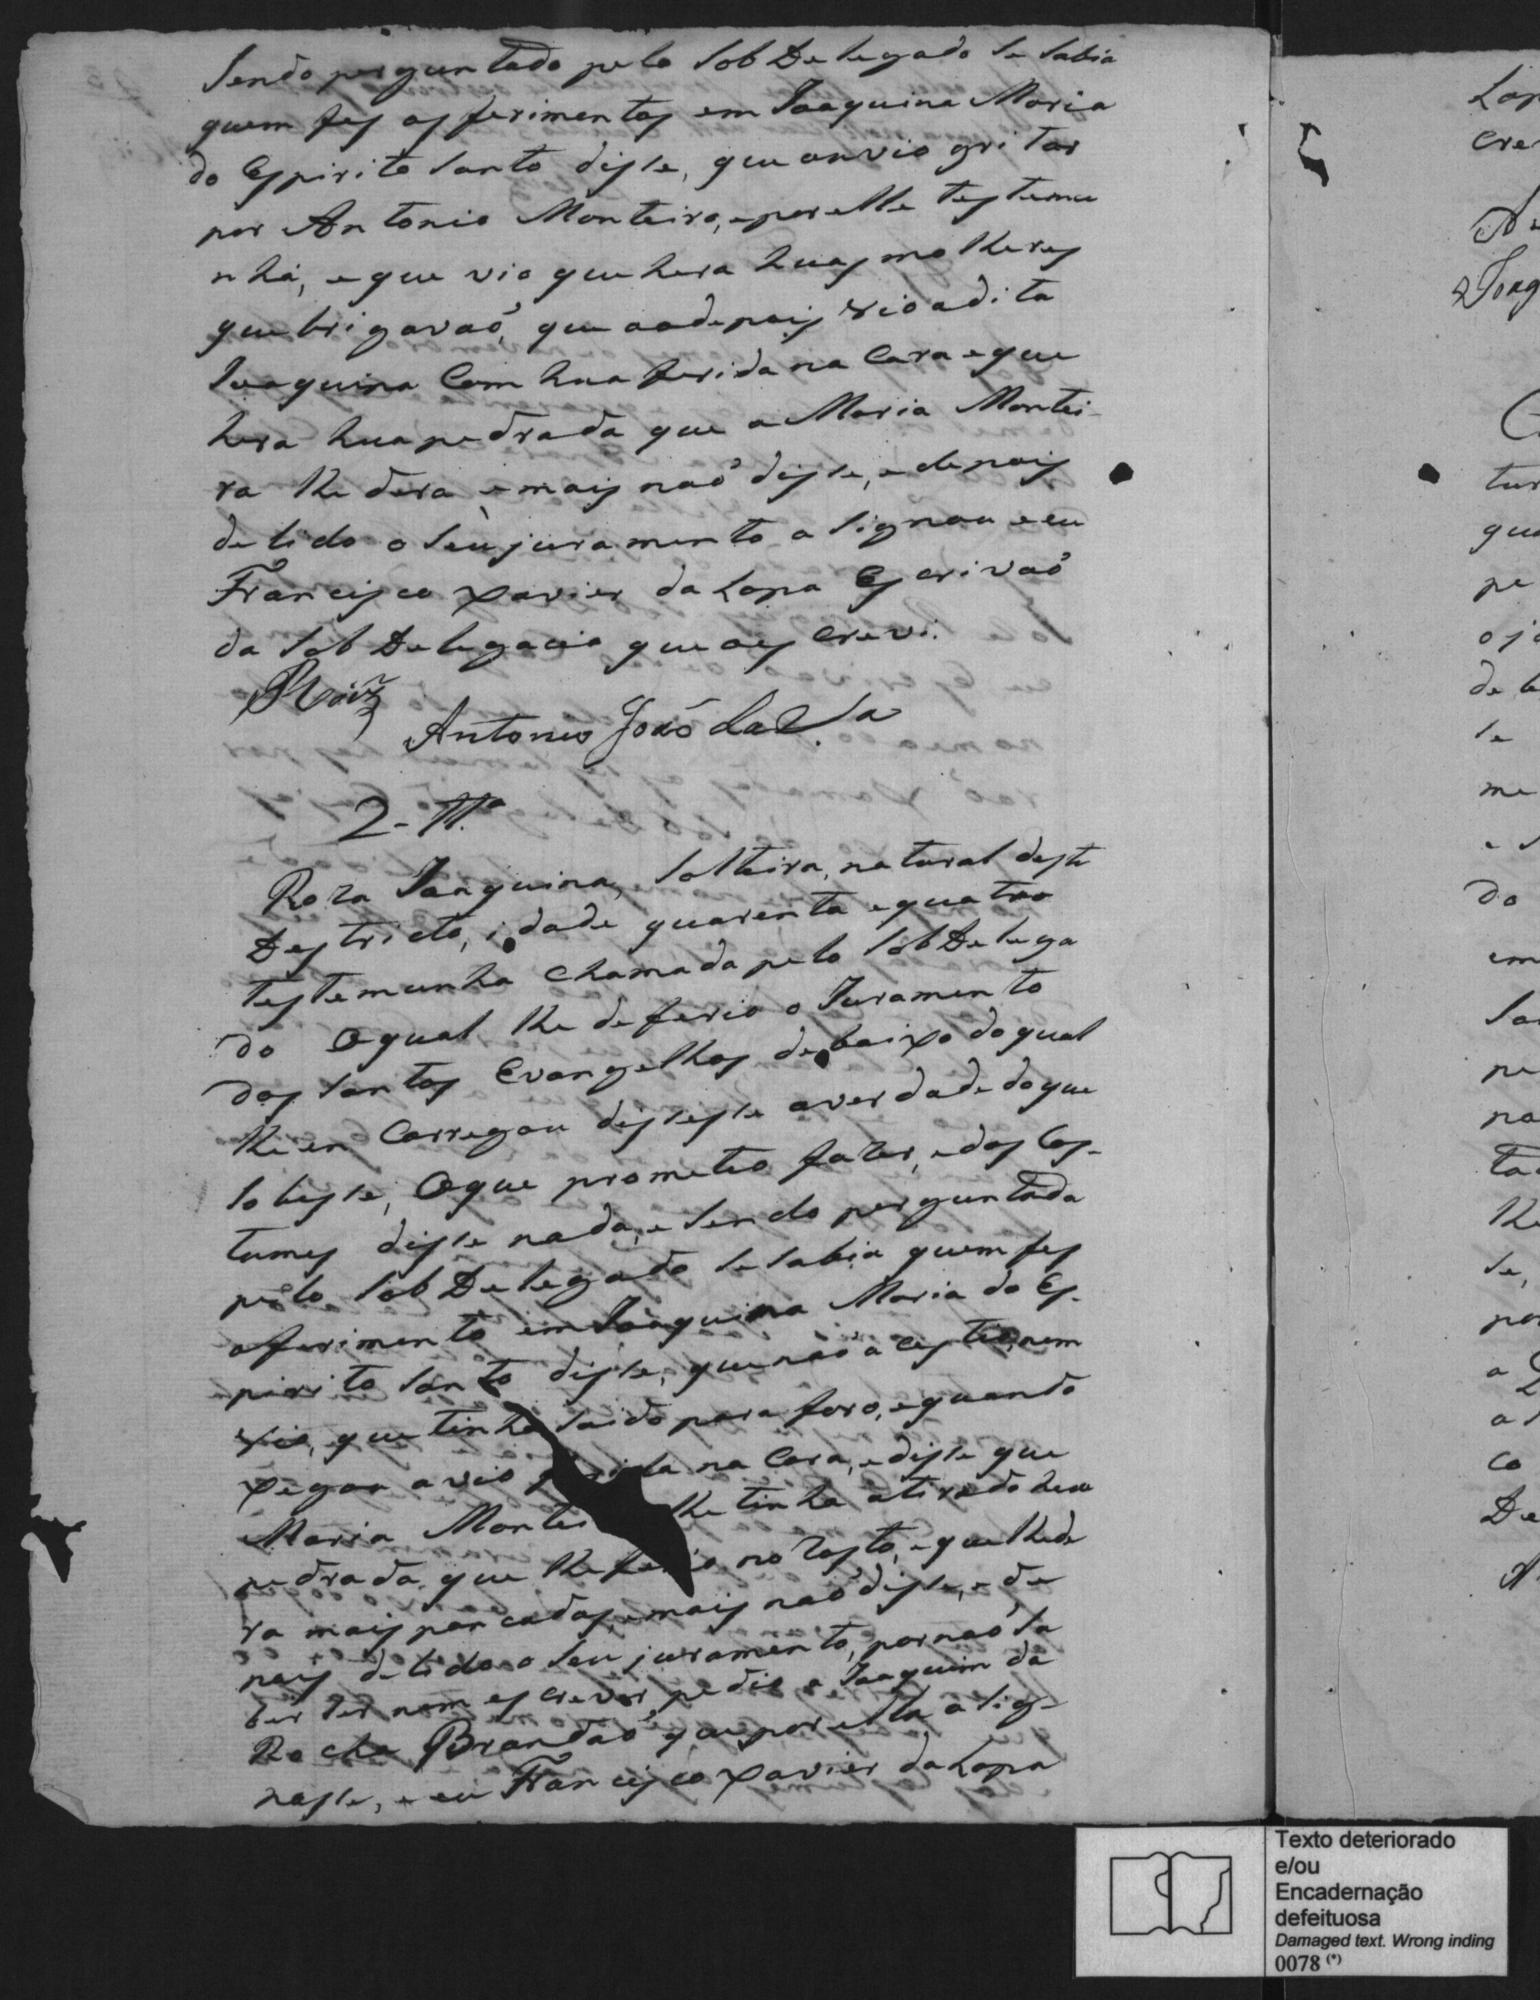 Sendo perguntado pelo SobDelegado se sabia
quem fes os ferimentos em Joaquina Maria
do Espirito Santo disse, que ouvio gritar
por Antonio Monteiro, e por elle testemu
nha, e que vio que hera huas molheres
que brigavaõ, que aodepois vio a dita
Joaquina Com hua ferida na Cara e que
hera hua pedrada que a Maria Montei-
ra lhe dera e mais naõ disse, e depois
de lido o seu juramento asignou e eu
Francisco Xavier da Lapa Escrivaõ
da SobDelegacia que o escrevi.
Roiz
Antonio João da S.a
2-Tt.a
Roza Joaquina, Solteira, natural deste
Destricto, idade quarenta e quatro
testemunha chamada pelo SobDelega
do Oqual lhe deferio o Juramento
dos Santos Evangelhos debaixo do qual
lhe en Carregou dissesse a verdade do que
Sobesse, Oque prometeo fazer, e dos Cos-
tumes disse nada, e Sendo perguntada
pelo SobDelegado se sabia quem fes
o ferimento em Joaquina Maria do Es-
pirito Santo disse, que naõ acestio, nem
vio, que tinha saido para fora, e quando
xegou a vio na Cara, e disse que
Maria lhe tinha atirado hua
pedrada que lhe ferio no Rosto, e que lhe de
ra mais pancadas, e mais naõ disse, e de
pois de lido o seu juramento, por naõ Sa
ber ler nem escrever, pedio a Joaquim da
Rocha Brandaõ que por ella asig-
nasse, e eu Francisco Xavier da Lapa
Texto deteriorado
e/ou
Encadernação
defeituosa
Damaged text. Wrong inding
0078 (*)